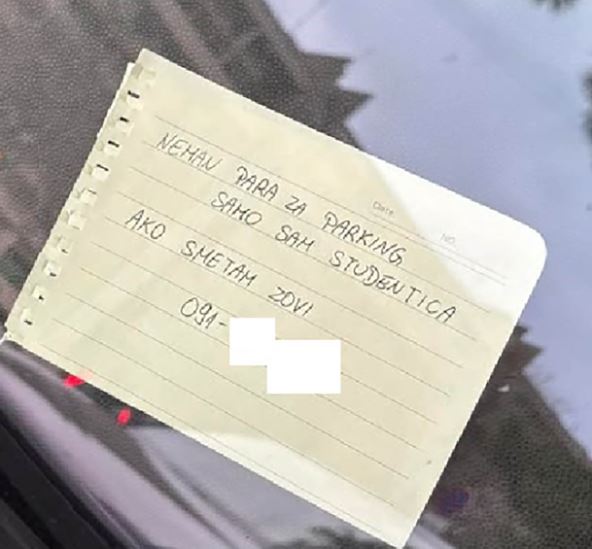 Date
NO.
NEMAN PARA ZA PARKING
SAMO SAM STUDENTICA
AKO SMETAM ZOVI
091-